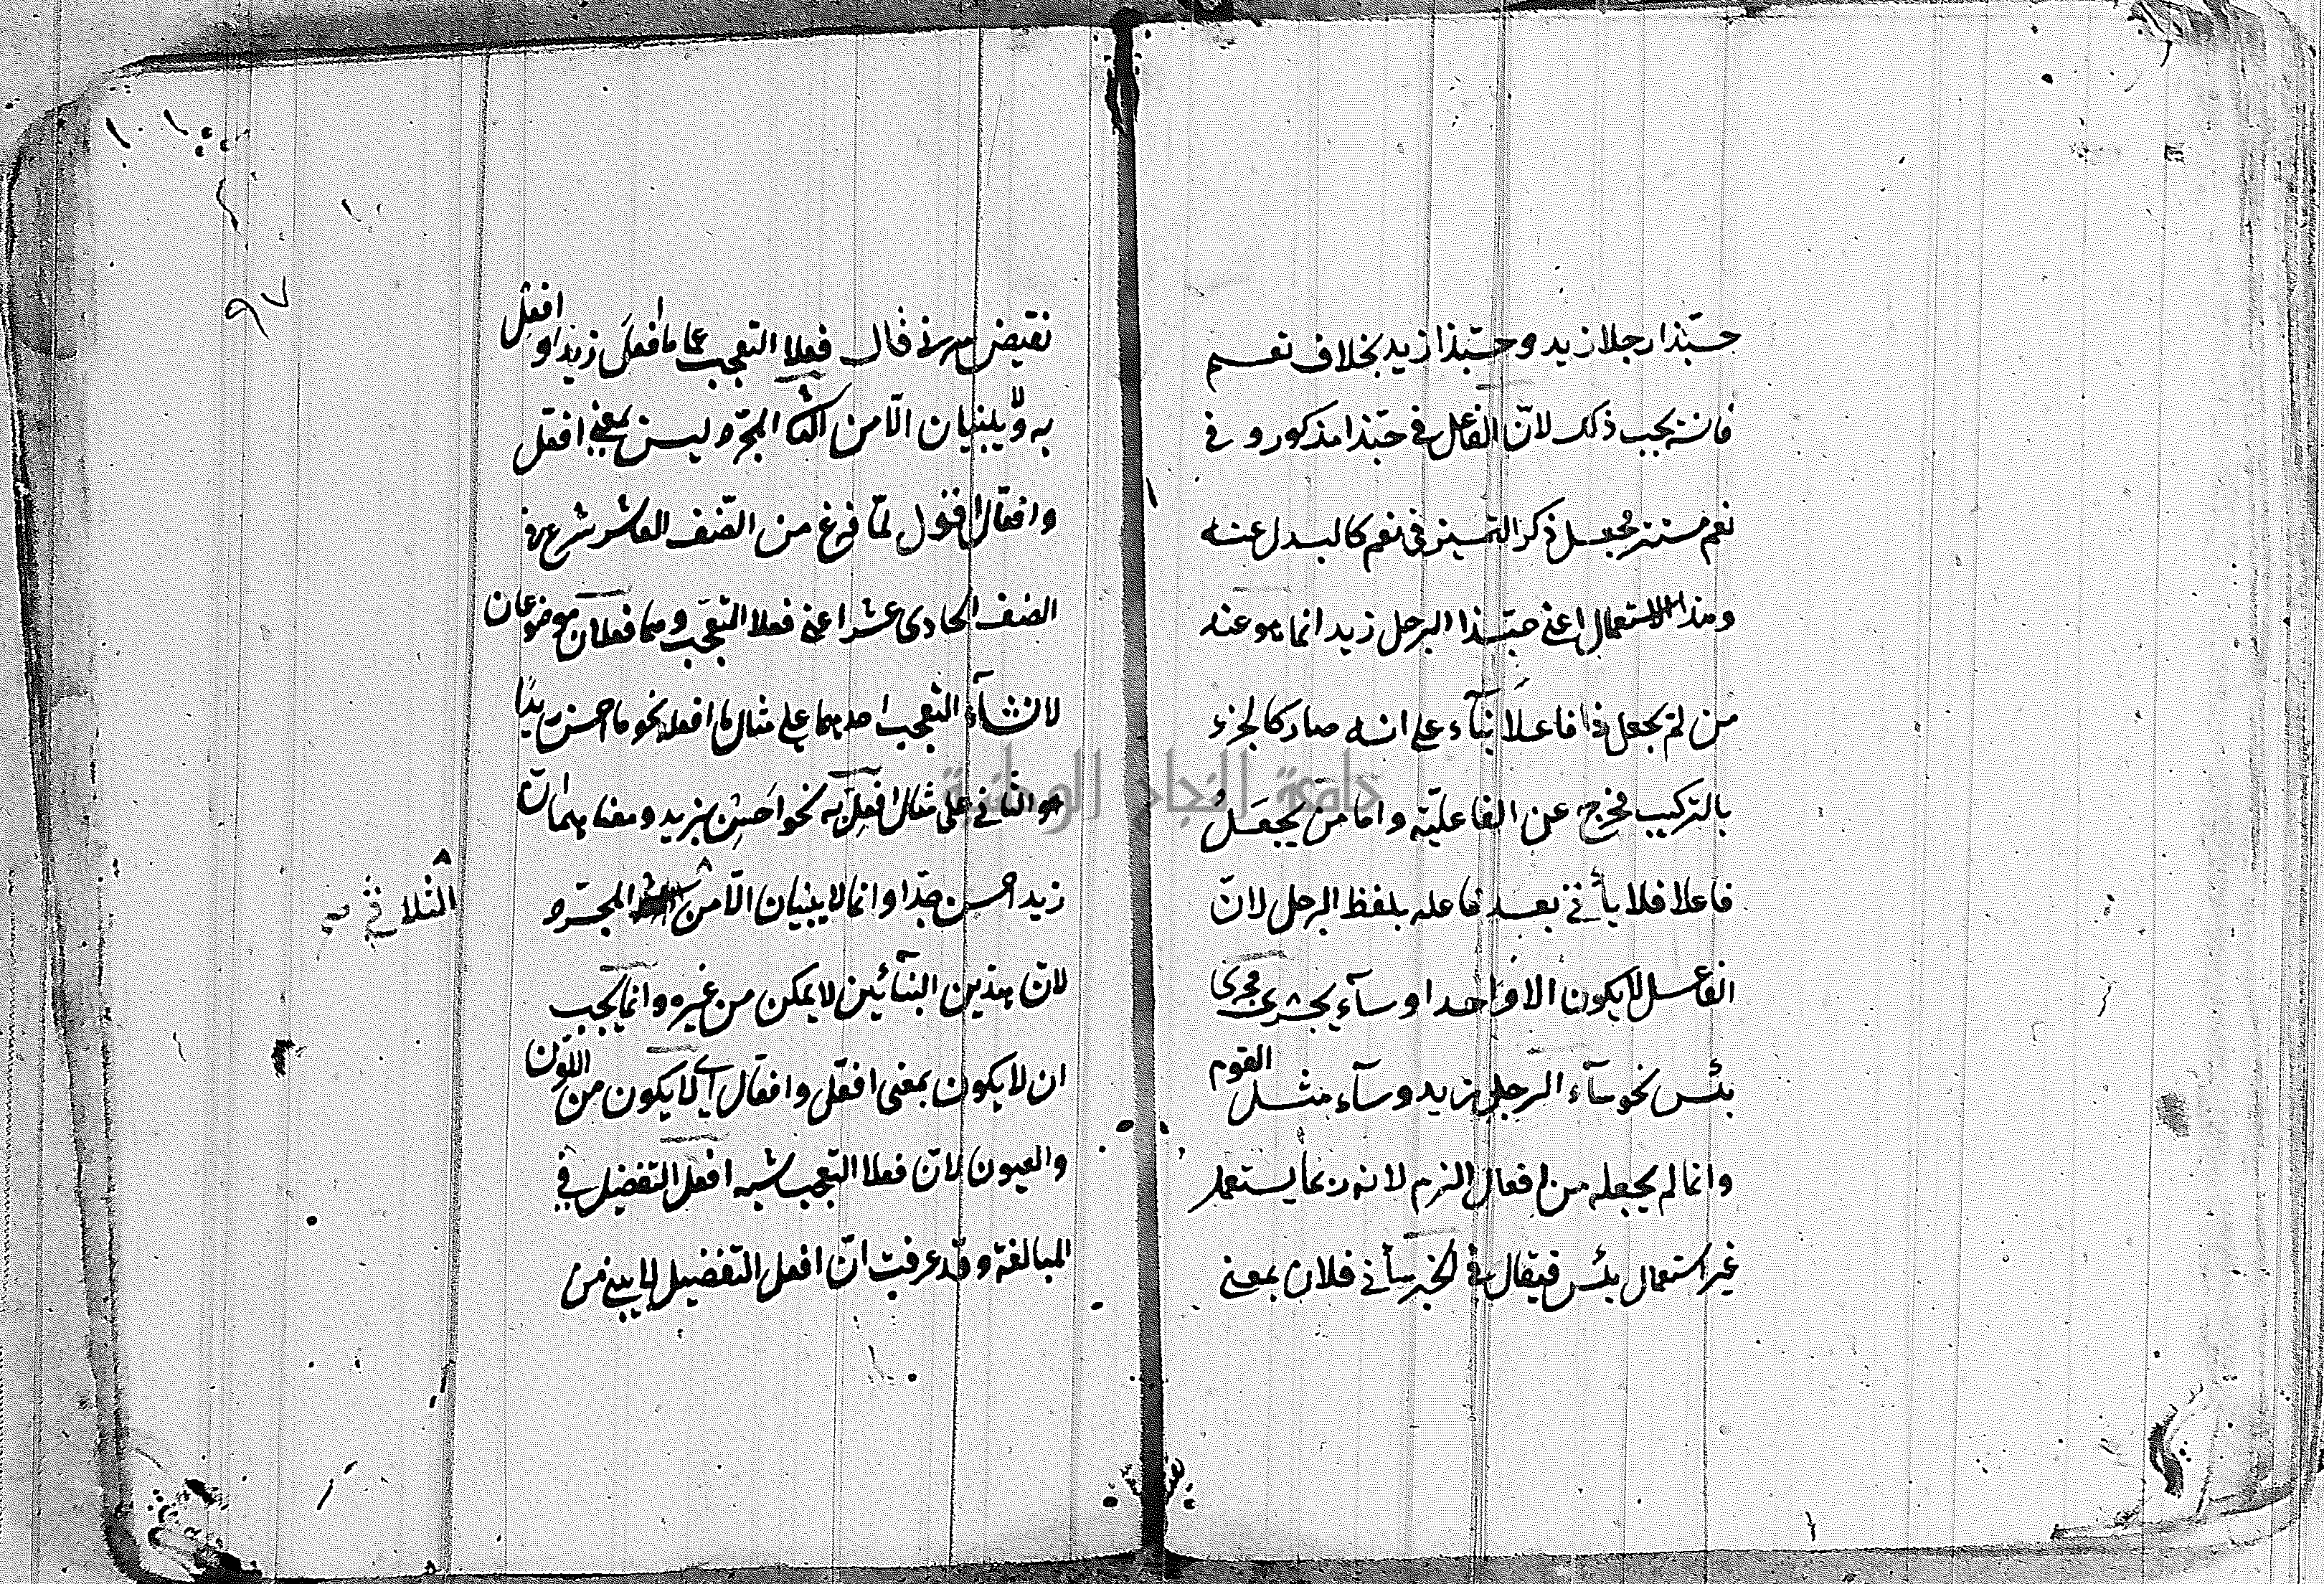 حبّذا رجلا زيد وحبّذا زيد بخلاف نعم
فانه يجب ذلك لانّ الفاعل في حبّذا مذكور وفي
نعم مستتر فجعل ذكر التمييز في نعم كالبدل عنه
وهذا الاستعمال اعني حبّذا الرجل زيد انما هو عند
من لم يجعل ذا فاعلا بنآء على انه صار كالجزء
بالتركيب فخرج عن الفاعليّة واما من يجعل
فاعلا فلا يأتي بعد فاعله بلفظ الرجل لانّ
الفاعل لا يكون الا واحدا وسآء يجري مجرى
بئس نحو سآء الرجل زيد وسآء مثل القوم
وانما لم يجعله من افعال الذم لانه ربما يستعمل
غير استعمال بئس فيقال في الخبر سأني فلان بمعنى
نقيض سرني قال فعلا التعجب هما ما افعل زيدا وافعل
به ولا يبنيان الّا من الثلا المجرد ليس بمعنى افعل
وافعال اقول لمّا فرغ من الصّنف العاشر شرع في
الصنف الحادي عشر اعني فعلا التعجّب وهما فعلان موضوعان
لانشآء التعجب احدهما على مثال ما افعله نحو ما احسن زيدًا
والثاني على مثال افعل به نحو احسن بزيد ومعناهما انّ
زيد احسن جدّا وانما لا يبنيان الّا من المجرّد
الثلاثي صح
لانّ هذين البنآئين لا يمكن من غيره وانما يجب
ان لا يكون بمعنى افعلّ وافعالّ اي لا يكون من اللّون
والعيون لانّ فعلا التعجب شبه افعل التفضيل في
المبالغة وقد عرفت انّ افعل التفضيل لا يبنى من
٩٧
جامعة النجاح الوطنية